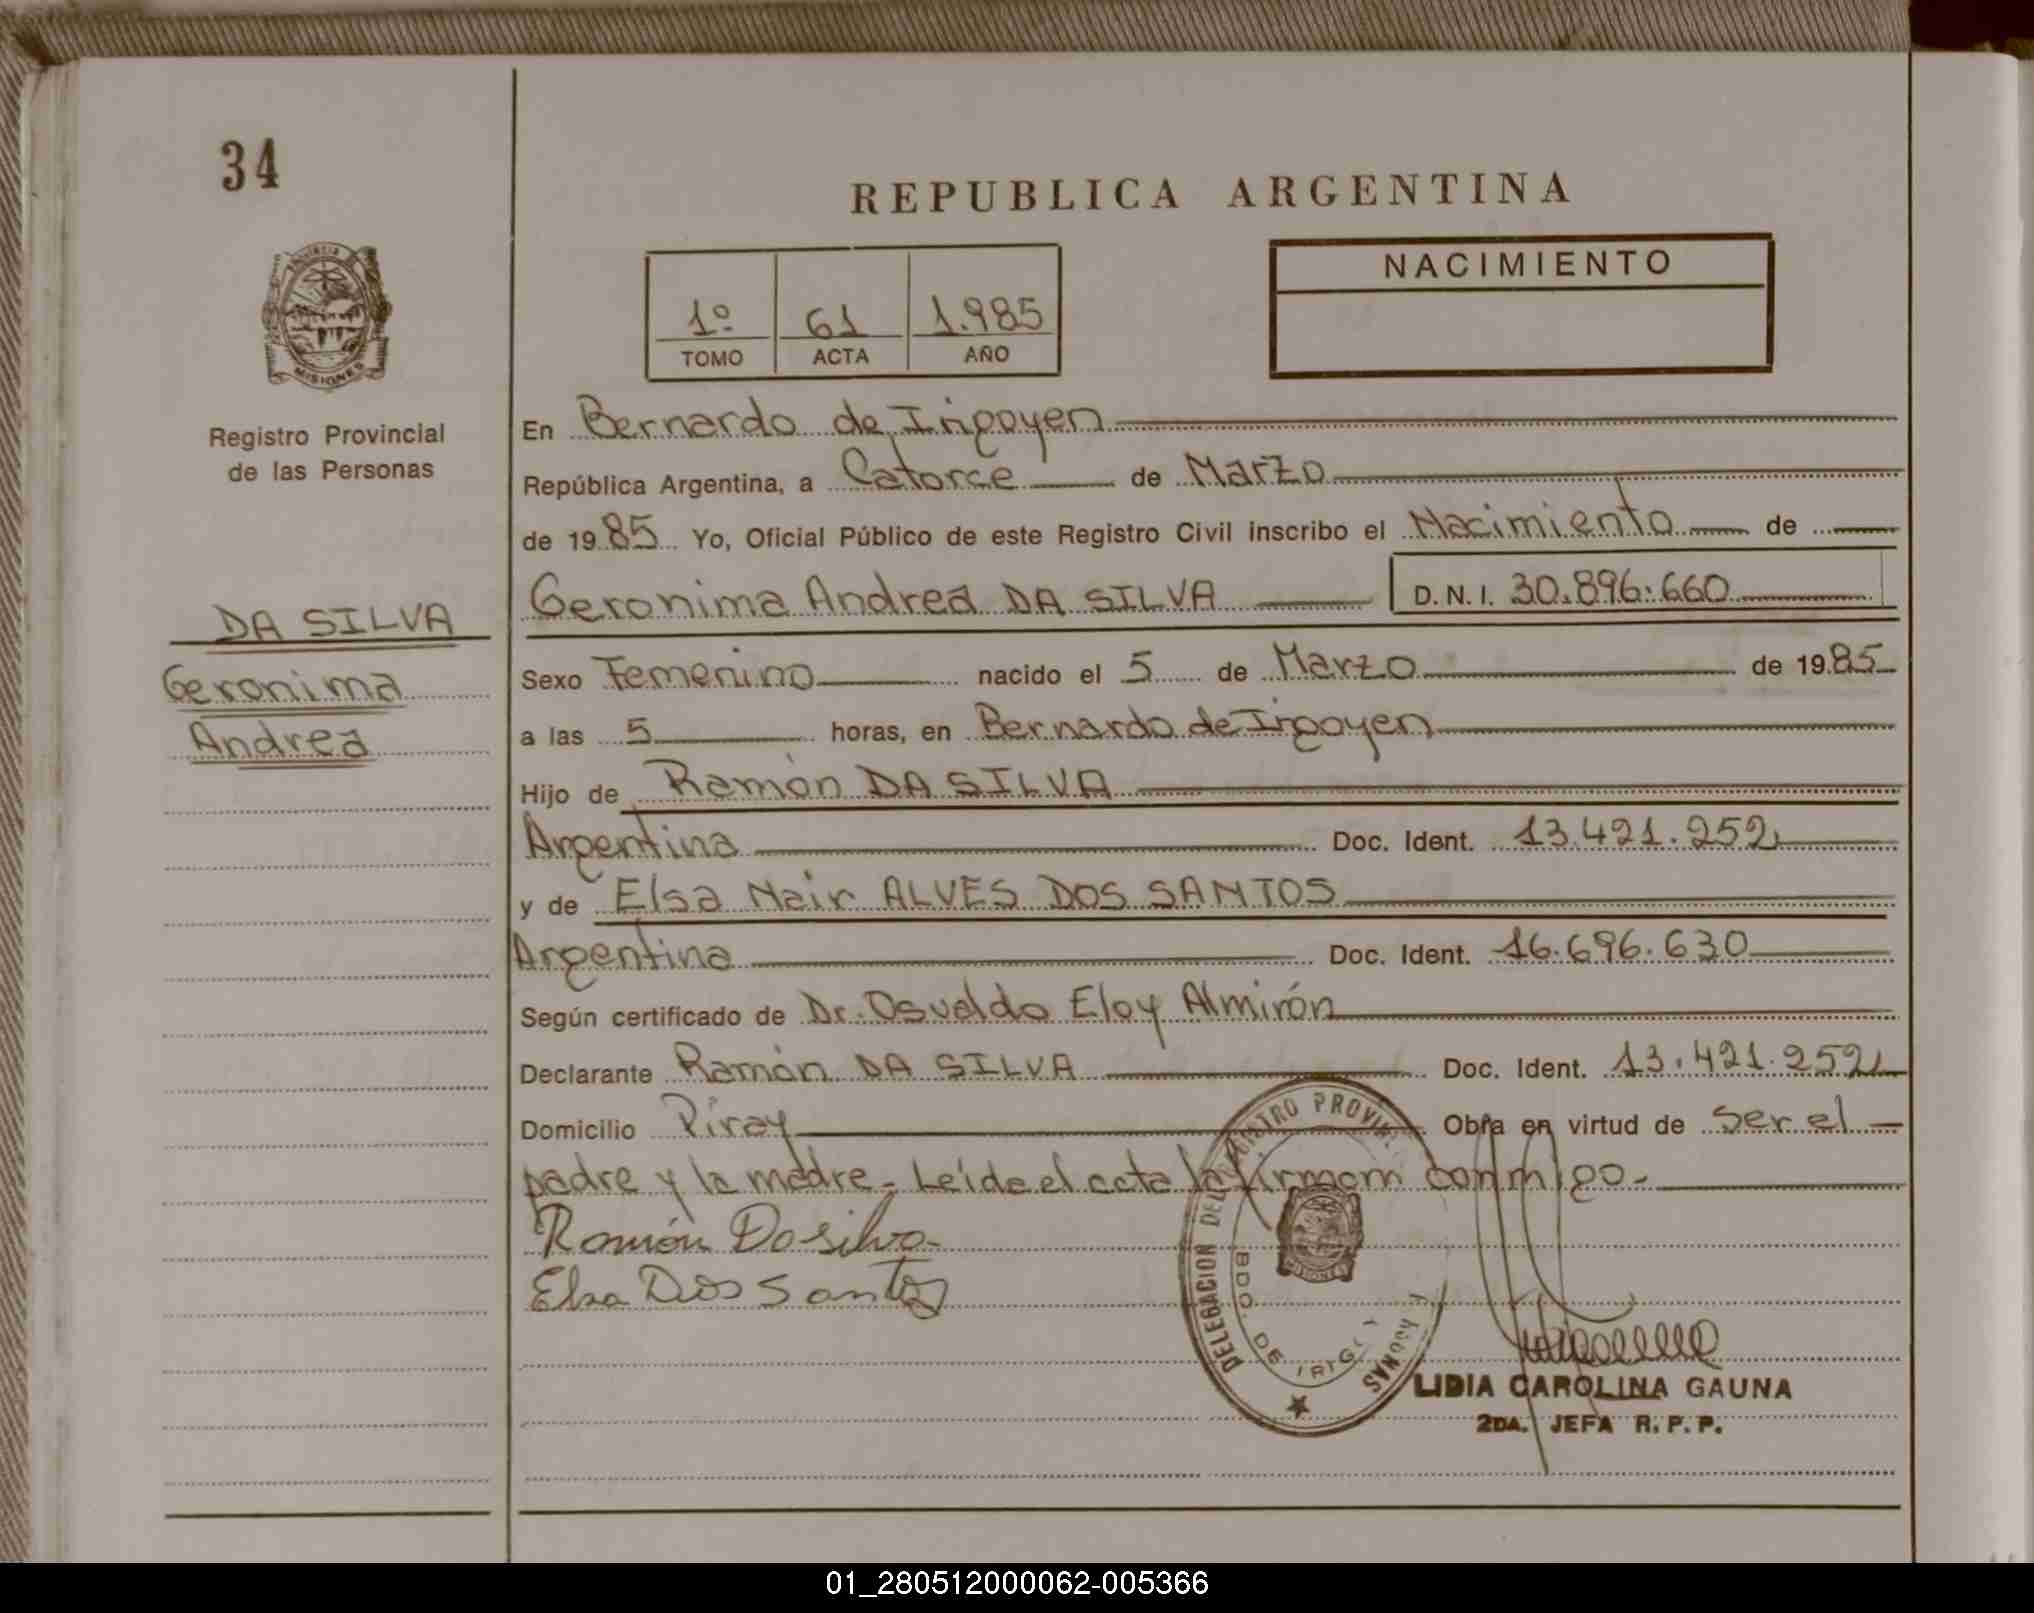 34
REPUBLICA ARGENTINA
PROVINCIA
MISIONES
1º 61 1.985
TOMO ACTA AÑO
NACIMIENTO
Registro Provincial
de las Personas
En Bernardo de Irigoyen
República Argentina, a Catorce de Marzo
de 1985 Yo, Oficial Público de este Registro Civil inscribo el Nacimiento de
Geronima Andrea DA SILVA D.N.I. 30.896.660
DA SILVA
Geronima
Andrea
Sexo Femenino nacido el 5 de Marzo de 1985
a las 5 horas, en Bernardo de Irigoyen
Hijo de Ramón DA SILVA
Argentina Doc. Ident. 13.421.252
y de Elsa Nair ALVES DOS SANTOS
Argentina Doc. Ident. 16.696.630
Según certificado de Dr. Osvaldo Eloy Almirón
Declarante Ramón DA SILVA Doc. Ident. 13.421.252
Domicilio Piray Obra en virtud de ser el
padre y la madre. Leída el acta la firman conmigo.
Ramón Da silva
Elsa Dos Santos
DELEGACION DEL REGISTRO PROVIN
SONAS
BDO. DE IRIGOY
MISIONES
LIDIA CAROLINA GAUNA
2DA. JEFA R.P.P.
01_280512000062-005366